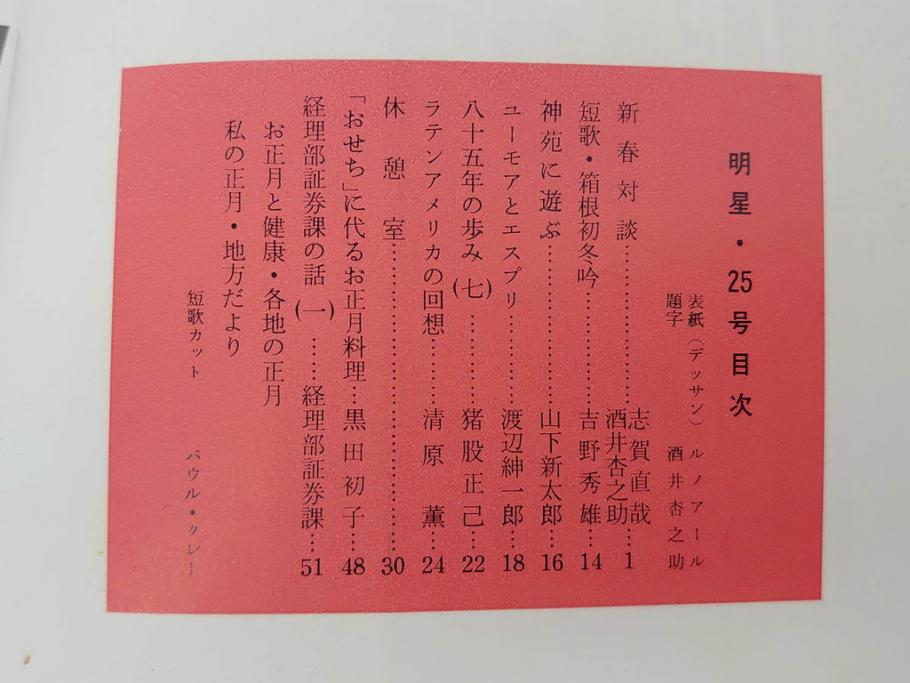 明星・25号目次
表紙（デッサン）ルノアール
題字　酒井杏之助
新春対談……志賀直哉 酒井杏之助…1
短歌・箱根初冬吟……吉野秀雄…14
神苑に遊ぶ……山下新太郎…16
ユーモアとエスプリ……渡辺紳一郎…18
八十五年の歩み(七)……猪股正己…22
ラテンアメリカの回想……清原薫…24
休憩室……30
「おせち」に代るお正月料理…黒田初子…48
経理部証券課の話(一)……経理部証券課…51
お正月と健康・各地の正月
私の正月・地方だより
短歌カット　パウル・クレー